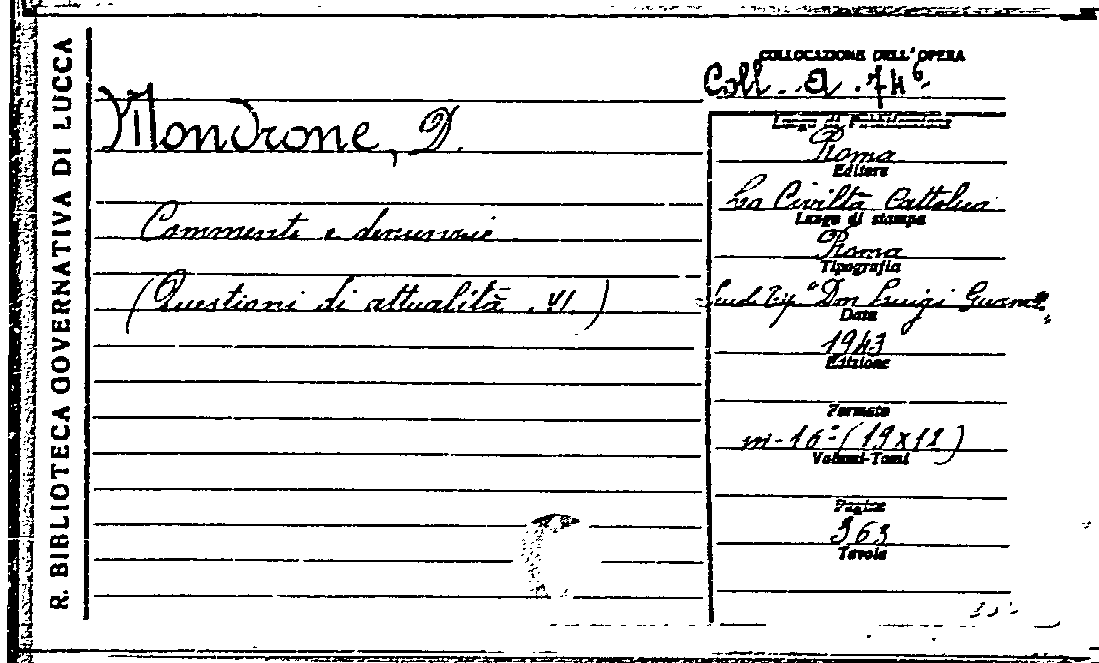 R. BIBLIOTECA GOVERNATIVA DI LUCCA
COLLOCAZIONE DELL'OPERA
Coll. A. 746
Mondrone, D.
Commenti e denunzie
(Questioni di attualità. VI.)
Luogo di Pubblicazione
Roma
Editore
La Civiltà Cattolica
Luogo di stampa
Roma
Tipografia
Scuol. Tip. "Don Luigi
Data
1943
Edizione
Formato
in-16° (19x12)
Volumi-Tomi
Pagine
363
Tavole